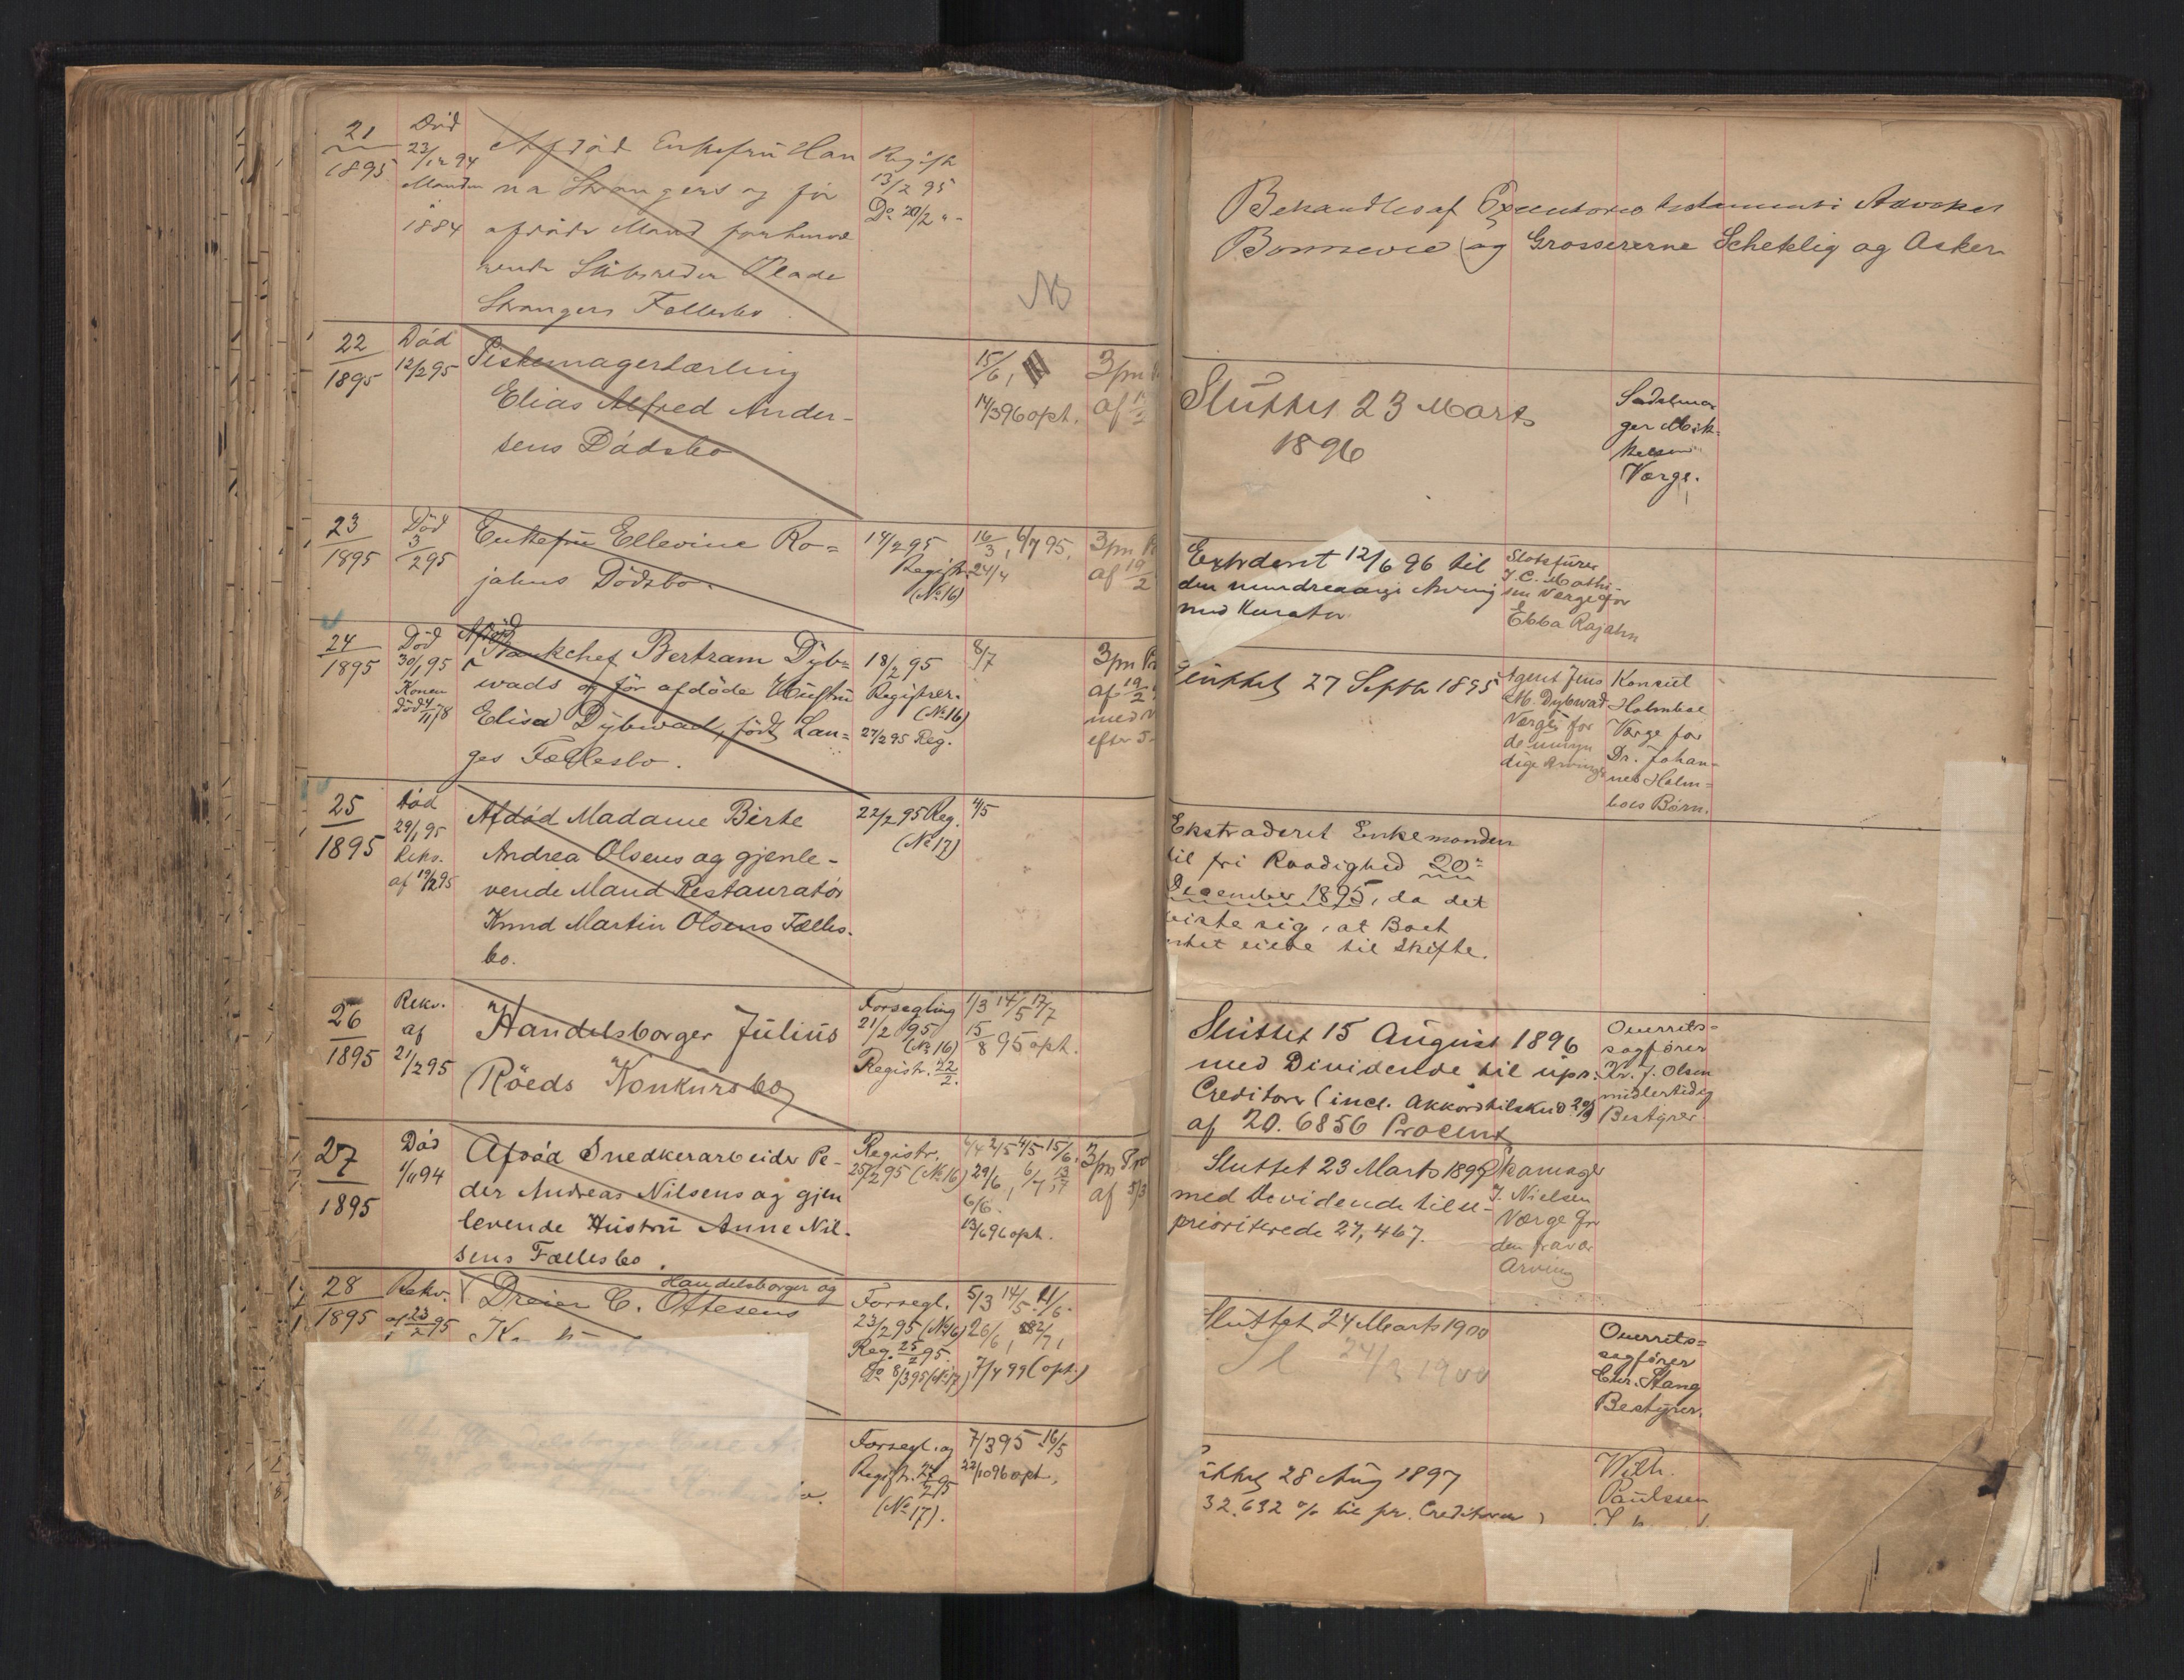 21
1895
Död
23/12 94
Manden
1884
Afdöd Enkefru Han
na Strangers og för
afdöde Mand forhenvæ
rende Skibsreder Plade
Strangers Fællesbo.
Registr
13/2 95
Do 20/2 "-
NB
Behandles af Executores testamenti Advokat
Bonnevie og Grossererne Schetelig og Asker
22
1895
Död
12/2 95
Elias Alfred Ander-
sens Dödsbo
15/6,
14/3 96 opt.
3 pn
af
Sluttet 23 Marts
1896
Sadelma
ger Mik-
kelsen
Værge.
23
1895
Död
3/2 95
Enkefru Ellevine Ro=
jahns Dödsbo.
14/2 95
Registr.
(No 16)
16/3, 6/7 95,
24/4
3 pn
af 19/2
Extradert 12/6 96 til
den mindreaarige Arving
med Kurator
J. C. Mathi
sen Værge for
Ebba Rojahn
24
1895
Död
30/1 95
Konen
död
Afdöd
Bankchef Bertram Dyb=
wads og för afdöde Hustru
Elisa Dybwad, födt Lan=
ges Fællesbo.
18/2 95
Registrer.
(No 16)
27/2 95 Reg.
8/7
3 pn Pr
af 19/2
med
efter
Sluttet 27 Septbr 1895
Agent Jens
M. Dybwad
Værge for
de umyn
dige Arvinge
Konsul
Holmboe
Værge for
Dr. Johan-
nes Holm=
boes Börn.
25
1895
Död
29/1 95
Rekv.
af 19/2 95
Afdöd Madame Birte
Andrea Olsens og gjenle-
vende Mand Restauratör
Knud Martin Olsens Fælles-
bo.
22/2 95 Reg.
(No 17)
4/5
Ekstraderet Enkemanden
til fri Raadighed 20de
December 1895, da det
viste sig, at Boet
intet eiede til Skifte.
26
1895
Rekv.
af
21/2 95
Handelsborger Julius
Röeds Konkursbo
Forsegling
21/2 95
(No 16)
Registr. 22/2.
1/3 14/5 17/7
15/8 95 opt.
Sluttet 15 August 1896
med Dividende til upr.
Creditorer (incl. Akkordtilskud
af 20.6856 Procent
Overrets=
sagförer
Kr. J. Olsen
midlertidig
Bestyrer
27
1895
Död
1/11 94
Afdöd Snedkerarbeider Pe-
der Andreas Nilsens og gjen
levende Hustru Anne Nil-
sens Fællesbo.
Registr.
25/2 95 (No 16)
4/4 2/5 4/5 15/6,
29/6, 6/7, 13/7
6/6.
13/6 96 opt.
3 pn Pro
af 5/3
Sluttet 23 Marts 1897
med Dividende til u-
prioriterede 27,467.
Skomager
J. Nielsen
Værge for
den fravær
Arving
28
1895
Rekv.
af 23/2 95
Handelsborger og
Dreier C. Ottesens
Forsegl.
23/2 95 (No 16)
Reg. 25/2 95.
Do 8/3 95 (No 17)
5/3 14/5 11/6.
26/6,
7/4 99 (opt.)
Sluttet 24 Marts 1900
Sl 24/3 1900
Overrets=
sagförer
Chr. Stang
Bestyrer.
Forsegl. og
Registr. 27/2 95
(No 17).
7/3 95 16/5
22/10 96 opt.
Sluttet 28 Aug 1897
32.632 % til pr. Creditorer
Wilh.
Paulssen